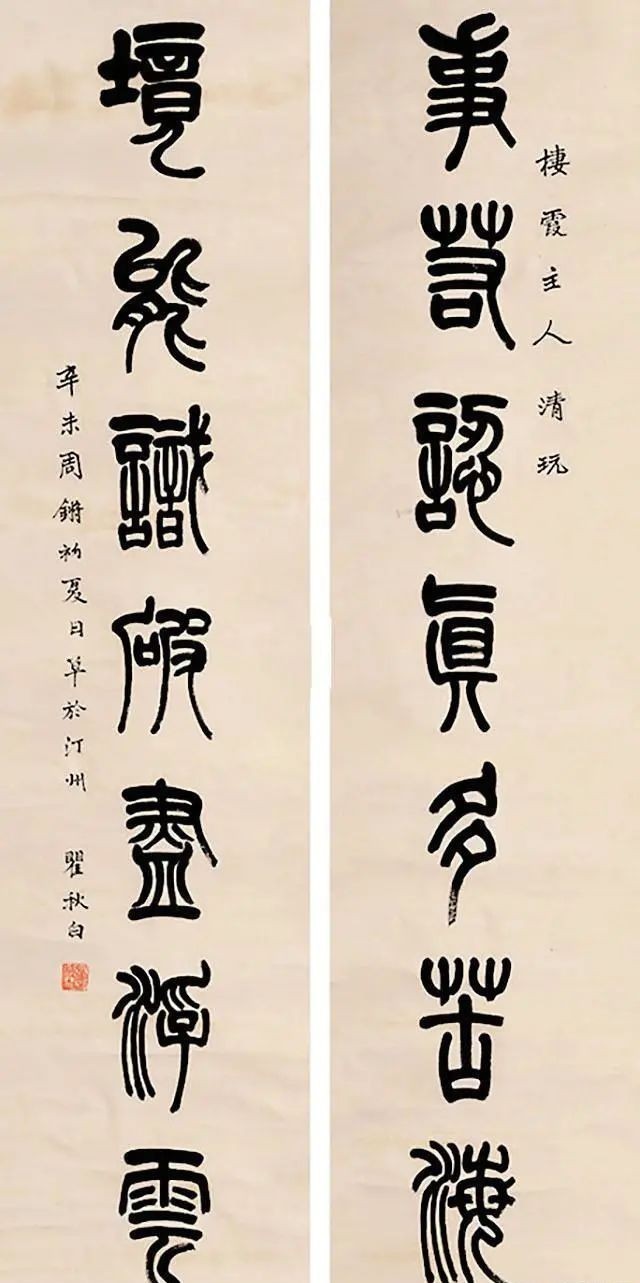 棲霞主人清玩
事若認真多苦海
境能識破盡浮雲
辛未周鏘初夏日草於汀州 瞿秋白